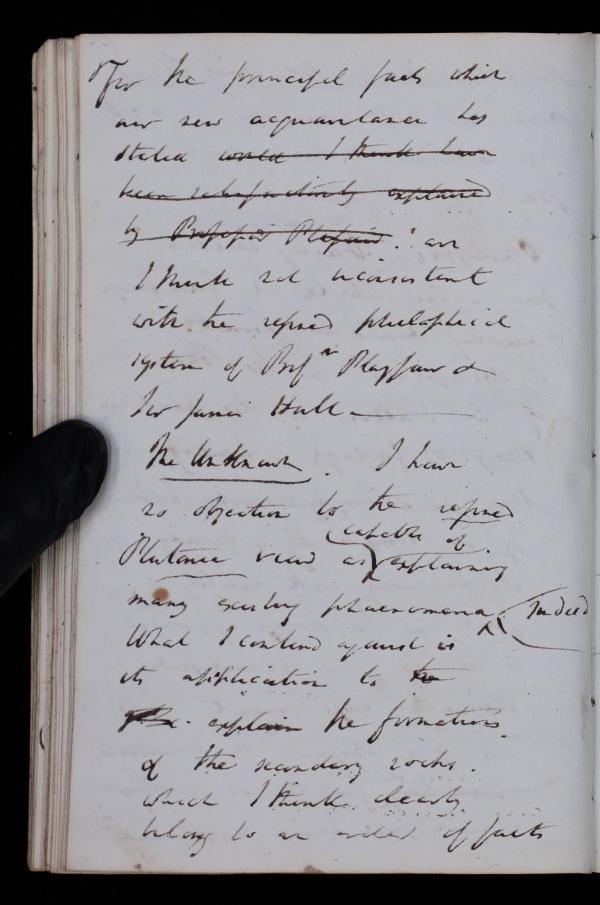 For the principal facts which
our new acquaintance has
stated would I think have
been satisfactorily explained
by Professor Playfair. are
I think not inconsistent
with the refined philosophical
system of Prof^r Playfair &
Sir James Hall —
The Unknown. I have
no objection to the refined
capable of
Plutonic view as explaining
many existing phaenomena Indeed
What I contend against is
its application to the
explain the formations
of the secondary rocks.
which I think clearly
belong to an order of facts